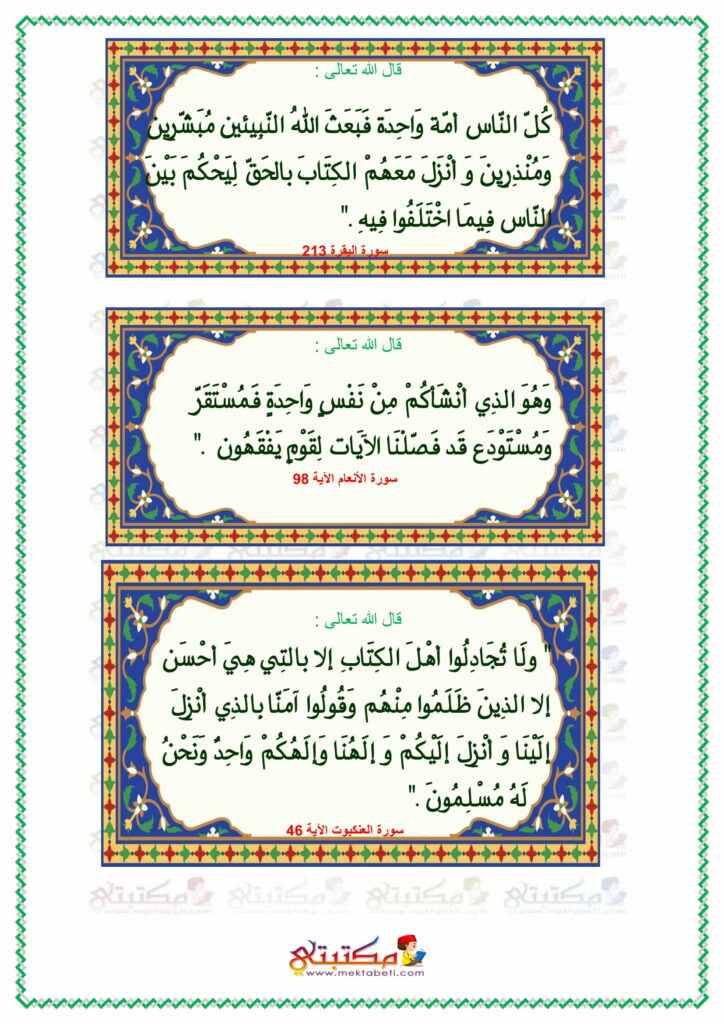 قال الله تعالى :
كُلّ النّاس أمّة وَاحِدَة فَبَعَثَ اللهُ النّبِيئين مُبَشّرِين
وَمُنْذِرِينَ وَ أنْزَلَ مَعَهُمْ الكِتَابَ بالحَقّ لِيَحْكُمَ بَيْنَ
النّاس فِيمَا اخْتَلَفُوا فِيهِ ."
سورة البقرة 213
قال الله تعالى :
وَهُوَ الذِي أنْشَأكُمْ مِنْ نَفْسٍ وَاحِدَةٍ فَمُسْتَقَرّ
وَمُسْتَوْدَع قَد فَصّلْنَا الآيَات لِقَوْمٍ يَفْقَهُون ."
سورة الأنعام الآية 98
قال الله تعالى :
" ولَا تُجَادِلُوا أهْلَ الكِتَابِ إلا بالتِي هِيَ أحْسَن
إلا الذِينَ ظَلَمُوا مِنْهُم وَقُولُوا آمَنّا بالذِي أنْزِلَ
إلَيْنَا وَ أنْزِلَ إلَيْكُمْ وَ إلَهُنَا وَإلَهُكُمْ وَاحِدٌ وَنَحْنُ
لَهُ مُسْلِمُونَ ."
سورة العنكبوت الآية 46
مكتبتي
www.mektabeti.com